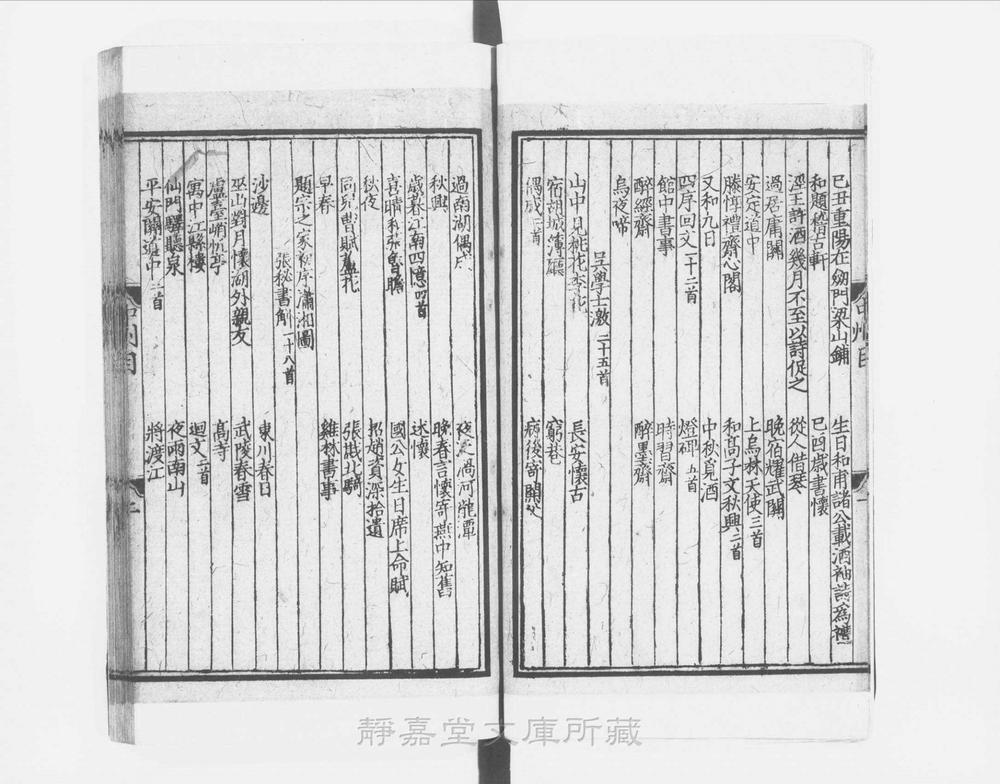 己丑重陽在劒門梁山鋪 生日和甫諸公載酒袖詩為禮
和題稽古軒 己酉歲書懷
濘王許酒幾月不至以詩促之 從人借琴
過居庸關 晚宿耀武關
安定道中 上烏林天使三首
滕惇禮齋心閣 和高子文秋興二首
又和九日 中秋覓酒
四序回文十二首 燈碑五首
館中書事 時習齋
醉經齋 醉墨齋
烏夜啼
吳學士激二十五首
山中見桃花李花 長安懷古
宿湖城簿廳 窮巷
偶成二首 病後寄開父
過南湖偶成 夜
秋興 晚春言懷寄燕中知舊
歲暮江南四憶四首 述懷
喜晴和張魯瞻 國公女生日席上命賦
秋夜 招趙資深拾遺
同兒曹賦蘆花 張戩北騎
早春 雞林書事
題宗之家初序瀟湘圖
張秘書斛一十八首
沙邊 東川春日
巫山對月懷湖外親友 武陵春雪
盧臺峭帆亭 高寺
寓中江縣樓 迴文二首
仙門驛聽泉 夜雨南山
平安關道中三首 將渡江
二
靜嘉堂文庫所藏